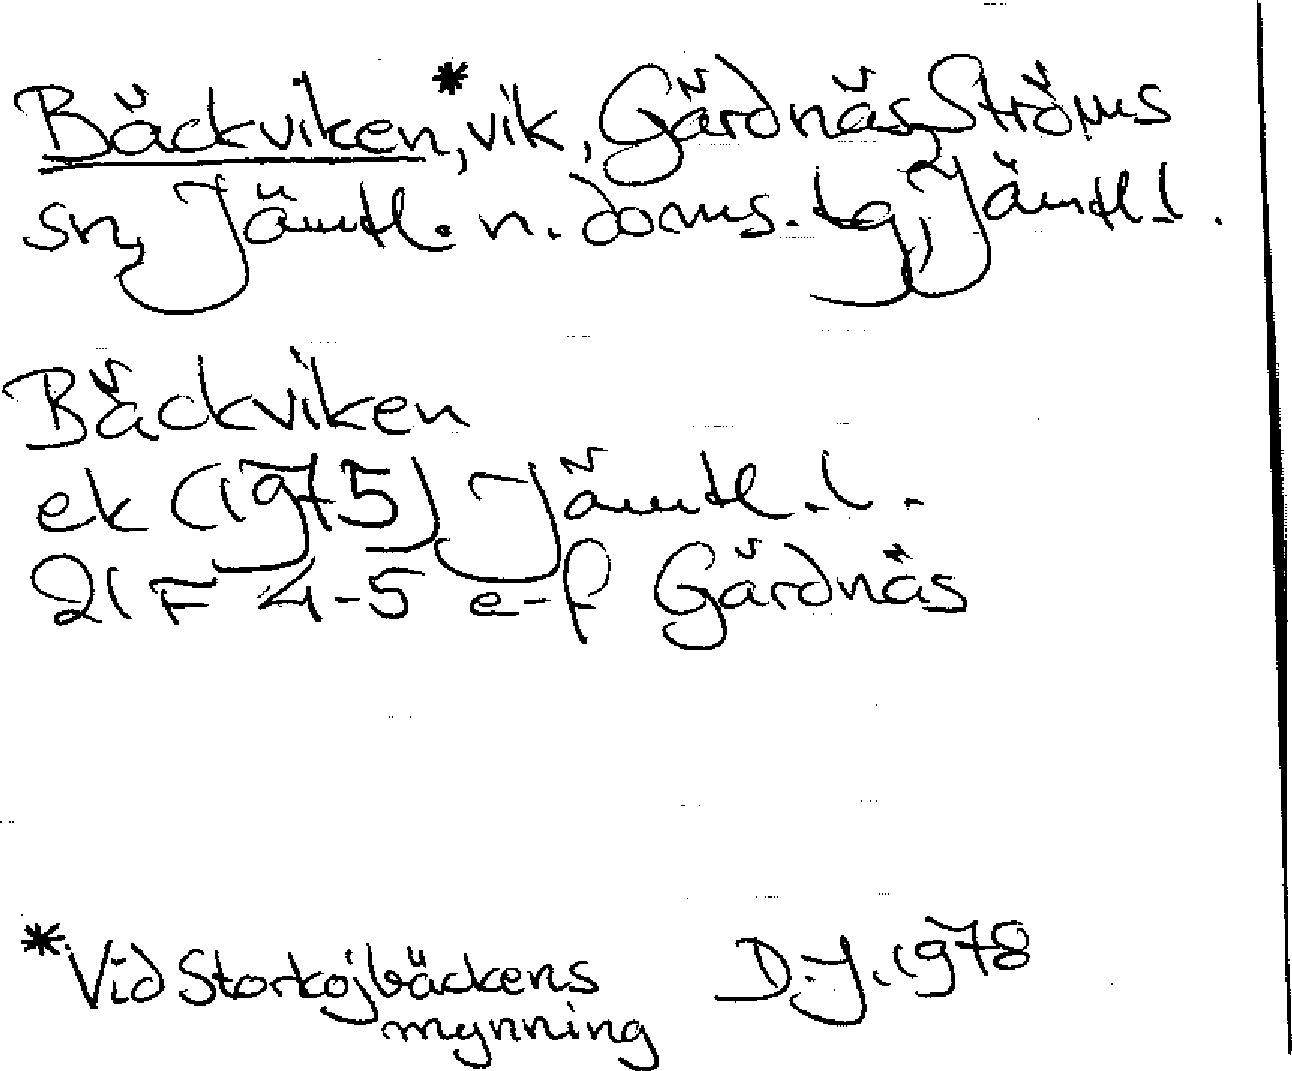 Bäckviken*, vik, Gärdnäs, Ströms
sn, Jämtl. n. doms. tg, Jämtl. l.
Bäckviken
ek (1975) Jämtl. l.
21 F 4-5 e-f Gärdnäs
*Vid Storkojbäckens
mynning
D.J. 1978